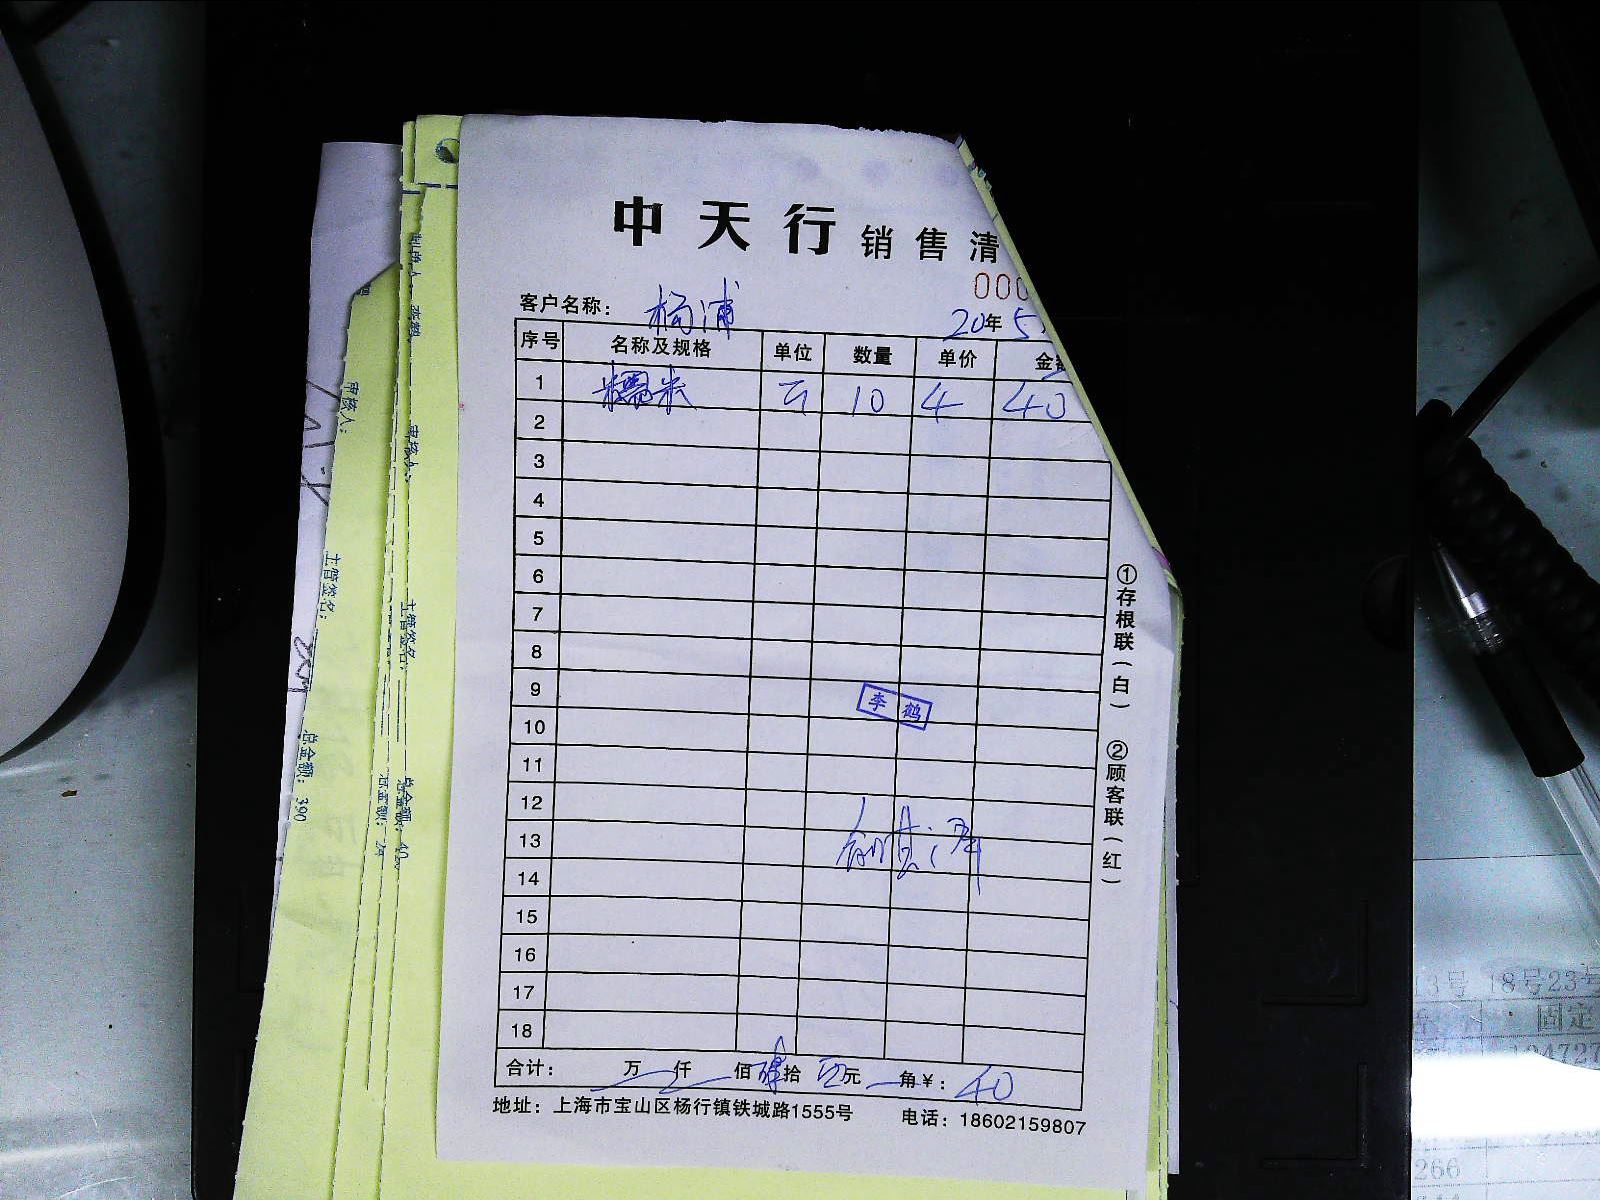 中天行 销售清
000
客户名称: 杨浦 20年5
序号 名称及规格 单位 数量 单价 金额
1 糯米 斤 10 4 40
2
3
4
5
6
7
8
9
李鹤
10
11
12
13
14
15
16
17
18
合计: 万 仟 佰 肆拾 元 角¥: 40
地址: 上海市宝山区杨行镇铁城路1555号 电话: 18602159807
①存根联(白) ②顾客联(红)
审核人:
主管签名:
总金额: 390
审核人:
主管签名:
总金额:
13号 18号23号
固定
266